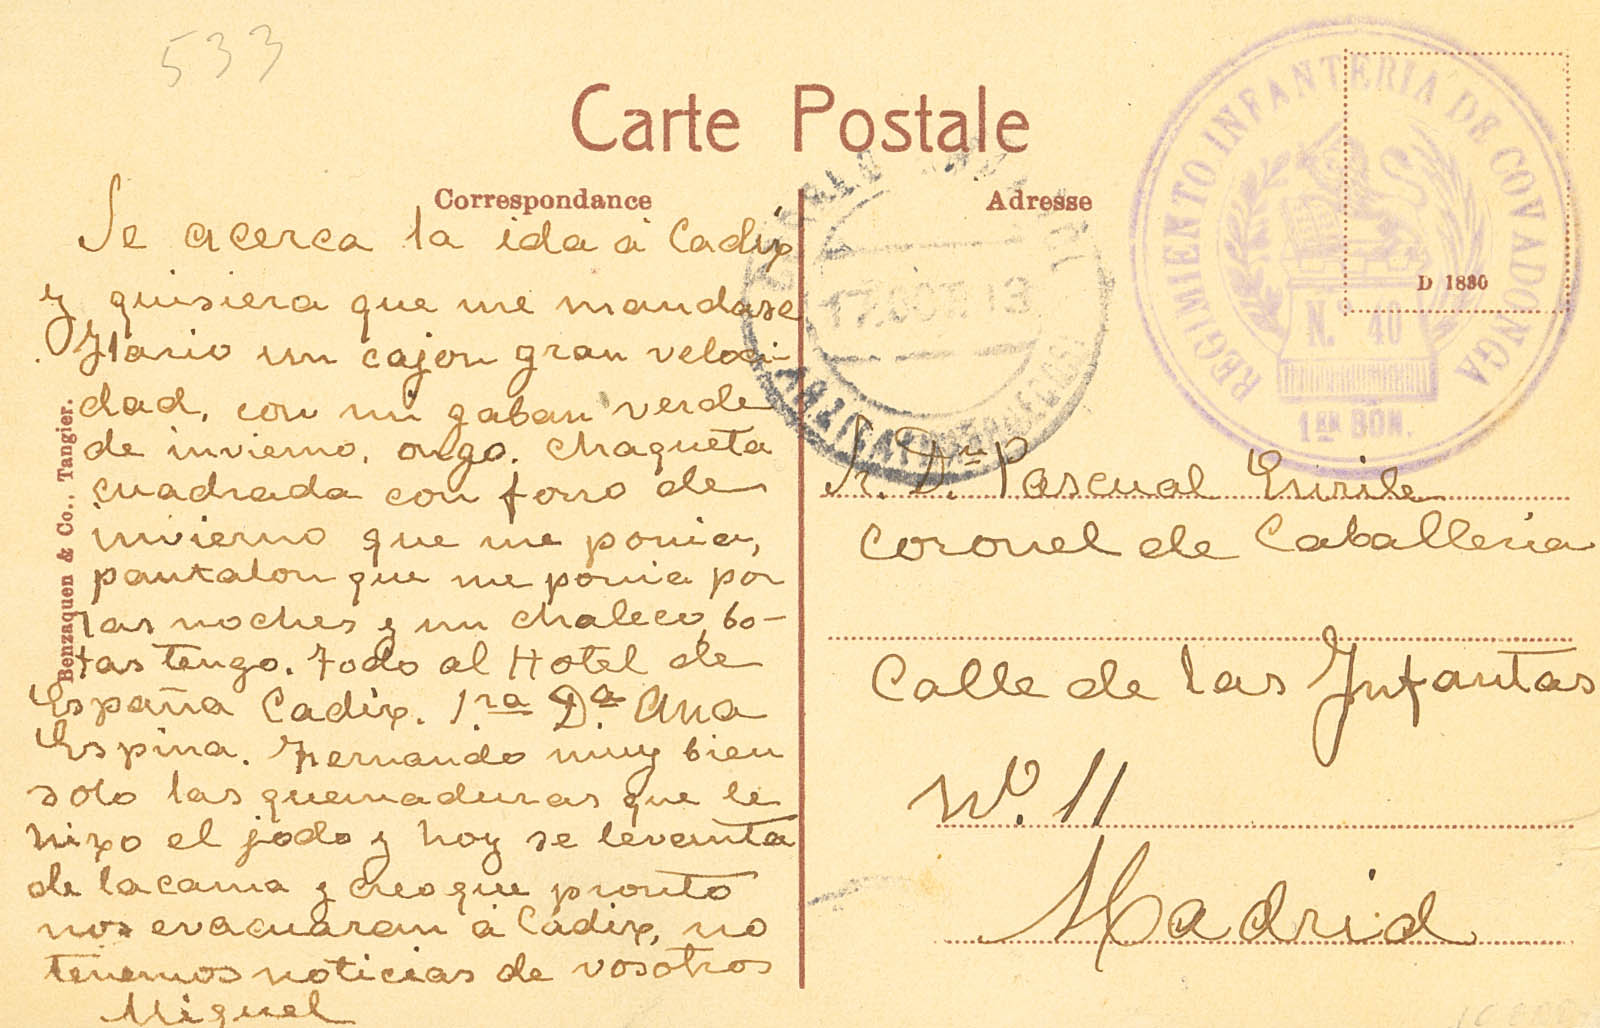 533
Carte Postale
Correspondance
Adresse
REGIMIENTO INFANTERIA DE COVADONGA
N.º 40
1ER BÓN.
D 1880
17 OCT 13
Benzaquen & Co., Tangier.
Se acerca la ida á Cadiz
y quisiera que me mandase
Ilario un cajon gran veloci-
dad, con mi gaban verde
de invierno, ongo. chaqueta
cuadrada con forro de
invierno que me ponia,
pantalon que me ponia por
las noches y un chaleco, bo-
tas tengo. Todo al Hotel de
España Cadiz. Sra Dª. Ana
Espina. Fernando muy bien
solo las quemaduras que le
hizo el jodo y hoy se levanta
de la cama y creo que pronto
nos evacuaran á Cádiz, no
tenemos noticias de vosotros
Miguel
Sr. Dn Pascual Enrile
Coronel de Caballeria
Calle de las Infantas
Nº. 11
Madrid